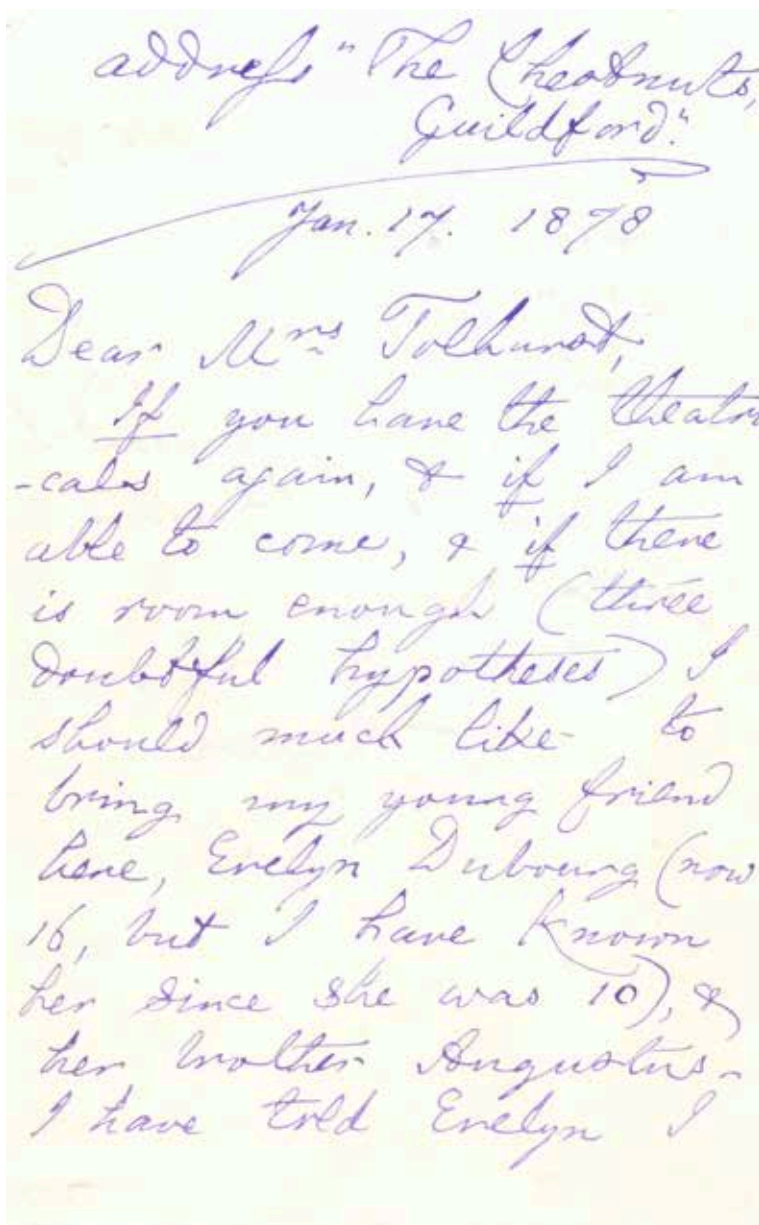 address "The Chestnuts,
Guildford."
Jan. 17. 1878
Dear Mrs Tolhurst,
If you have the theatri
-cals again, & if I am
able to come, & if there
is room enough (three
doubtful hypotheses) I
should much like to
bring my young friend
here, Evelyn Dubourg (now
16, but I have known
her since she was 10), &
her brother Augustus.
I have told Evelyn I